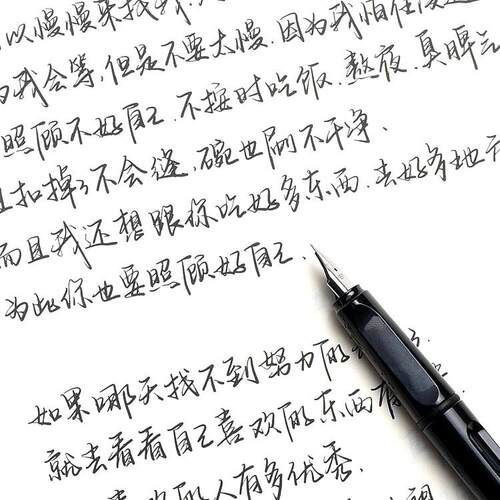 以慢慢来找我，
我会等，但是不要太慢．因为我怕
照顾不好自己．不按时吃饭．熬夜．臭脾气
扣掉了不会缝，碗也刷不干净、
而且我还想跟你吃好多东西．去好多地方
为此你也要照顾好自己．
如果哪天找不到努力的
就去看看自己喜欢的东西有
喜欢的人有多优秀．